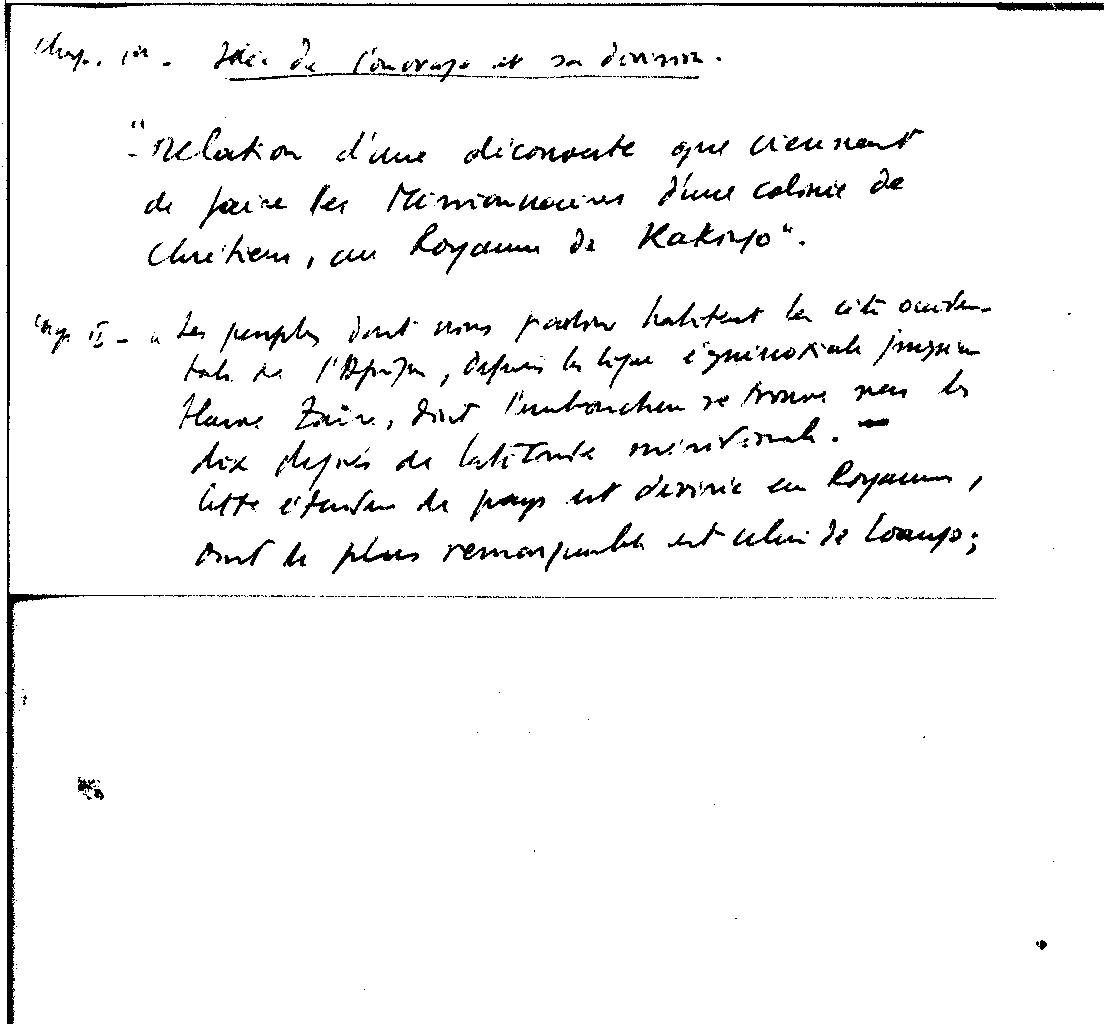 Chap. Ier. Idée de l'ouvrage et sa division.
"Relation d'une découverte que viennent
de faire les Missionnaires d'une colonie de
Chrétiens, au Royaume de Kakongo".
Chap. II - " Les peuples dont nous parlons habitent la côte occiden-
tale de l'Afrique, depuis la ligne équinoxiale jusqu'au
fleuve Zaïre, dont l'embouchure se trouve vers les
dix degrés de latitude méridionale. -
Cette étendue de pays est divisée en Royaumes,
dont le plus remarquable est celui de Loango;